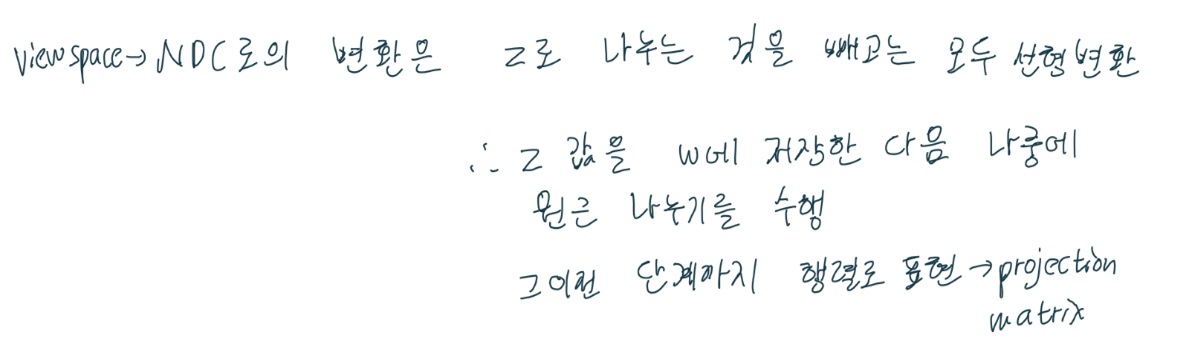 viewspace→NDC로의 변환은 z로 나누는 것을 빼고는 모두 선형변환
∴ z 값을 w에 저장한 다음 나중에
원근 나누기를 수행
그이전 단계까지 행렬로 표현→projection
matrix